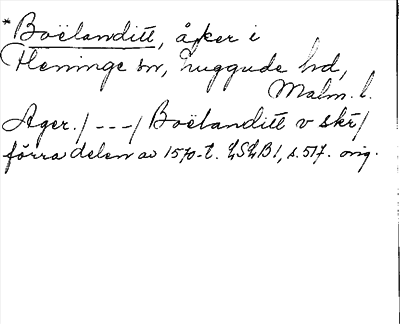 *Boëlanditt, åker i
Fleninge sn, Luggude hd,
Malm. l.
Ager. / --- / Boëlanditt v skr /
förra delen av 1570-t. LSLB1, s. 517. orig.